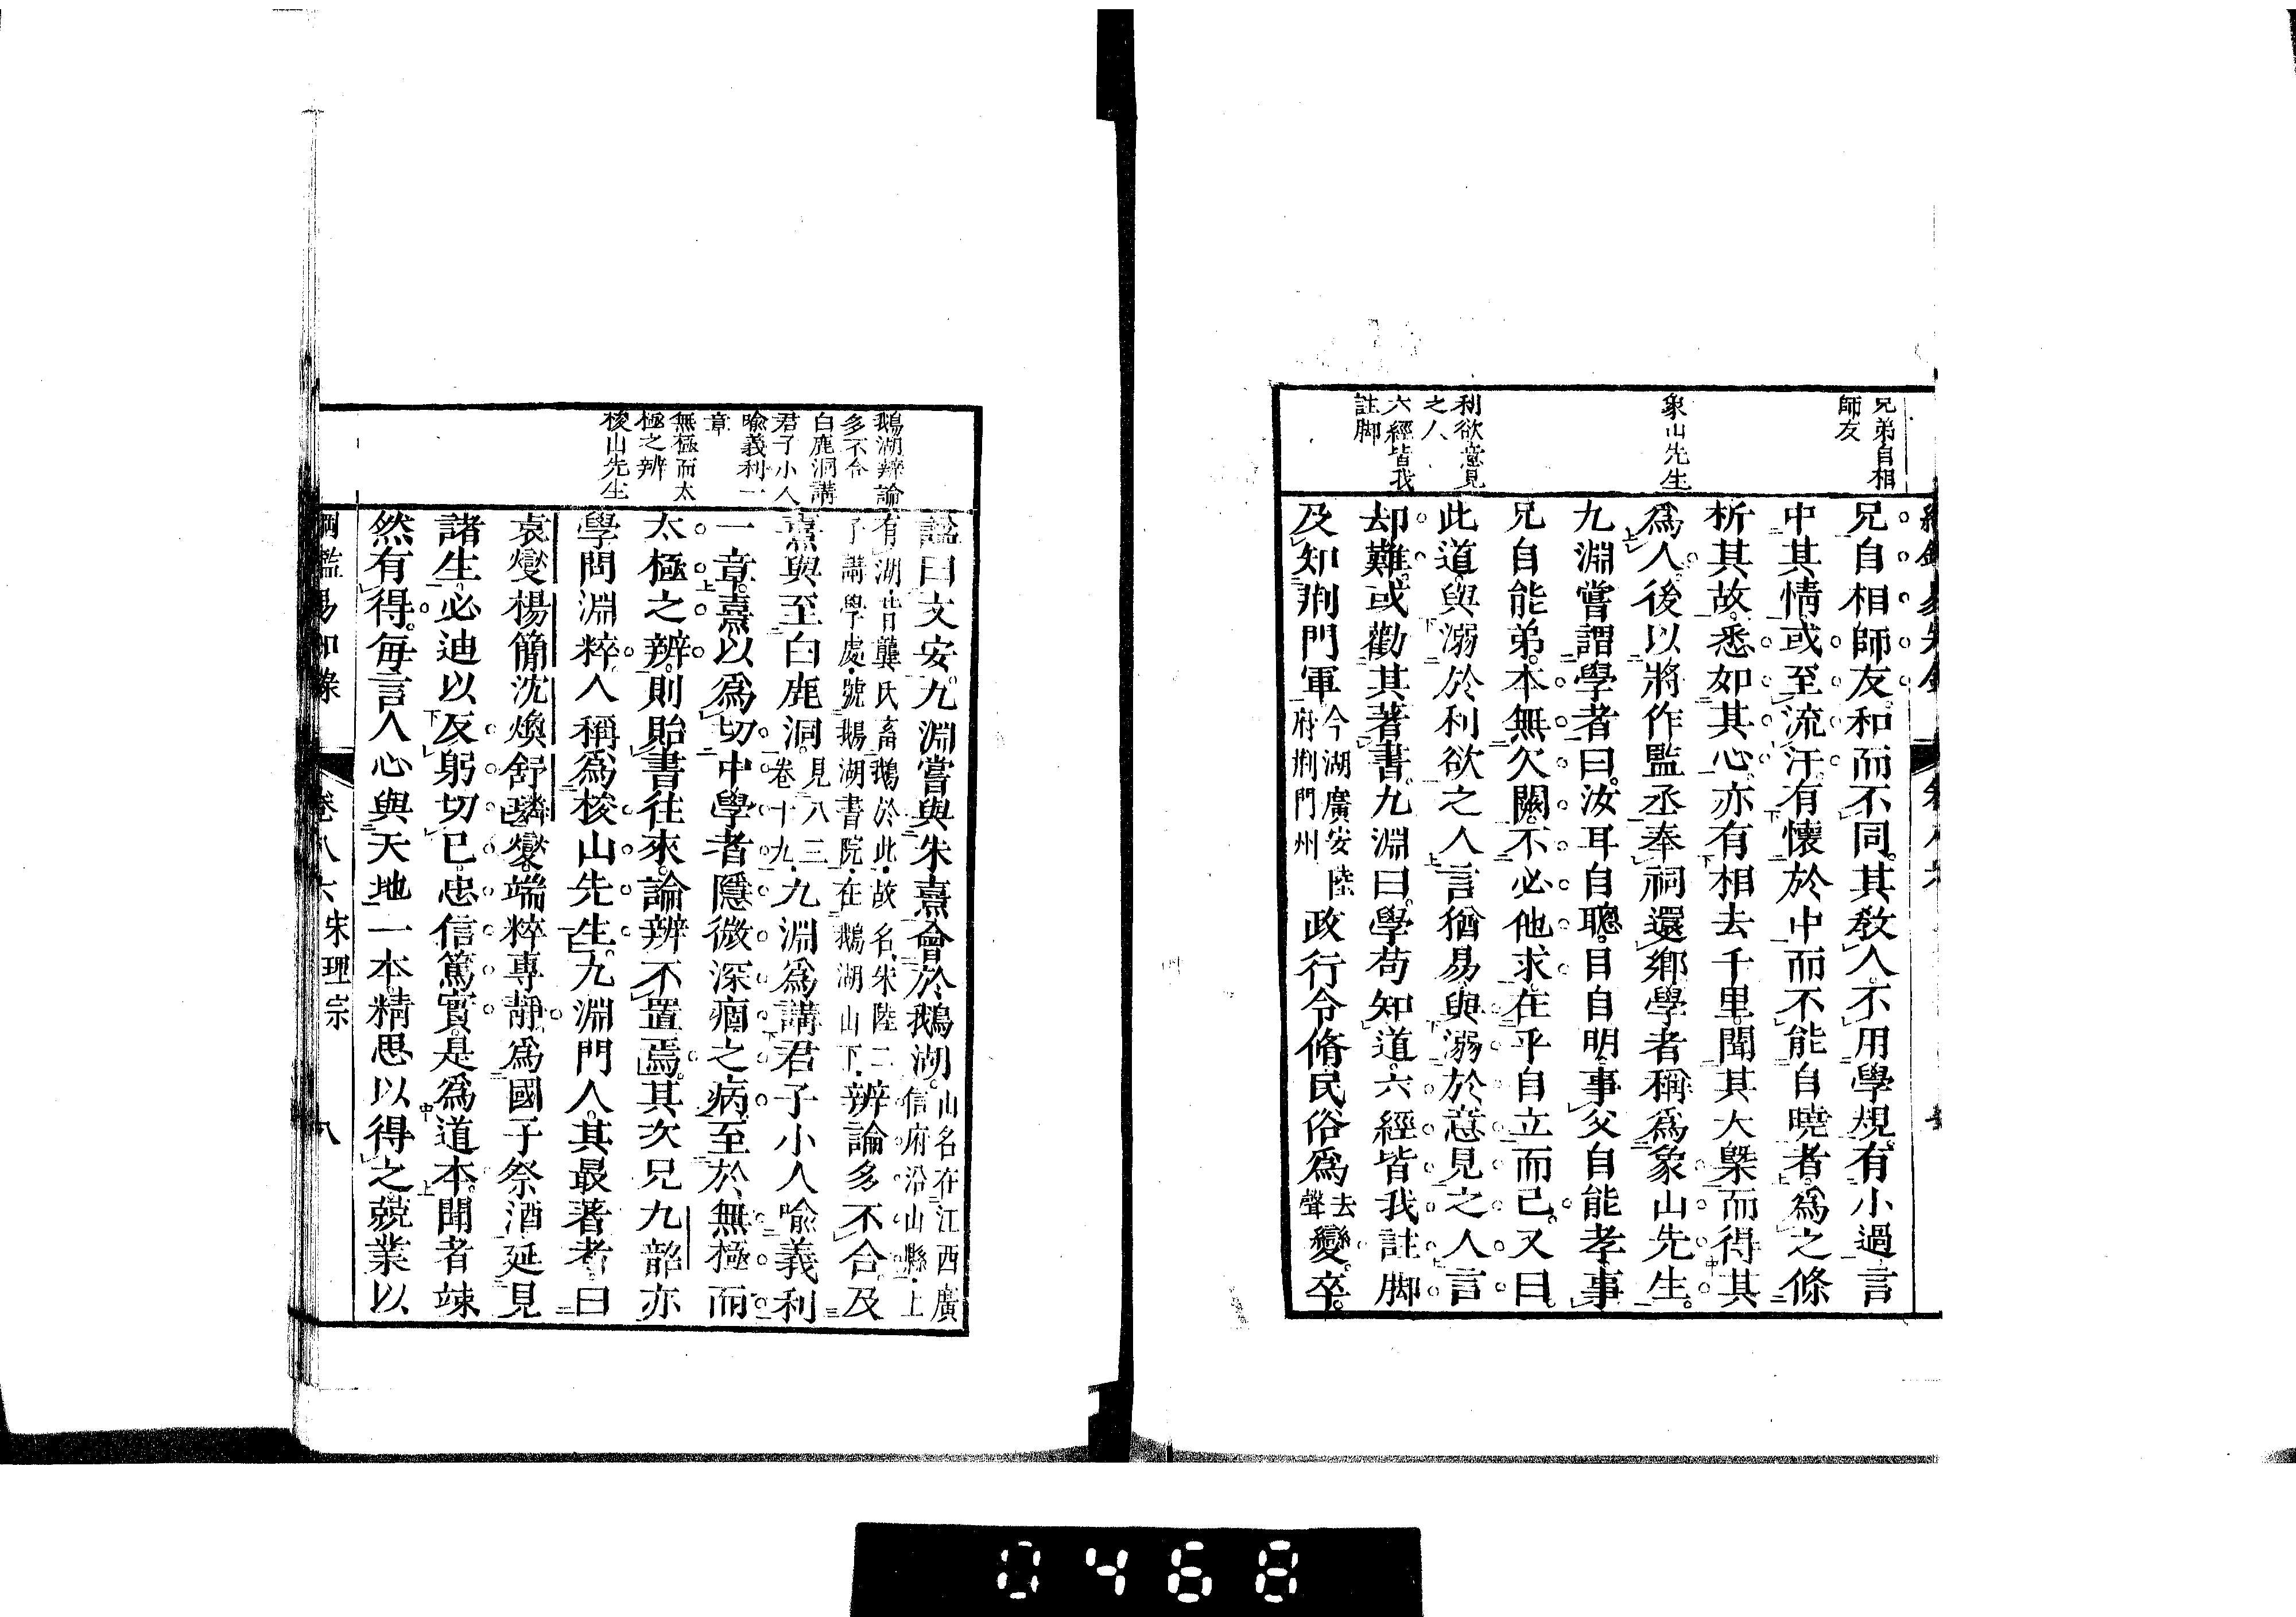 兄弟自相
師友
象山先生
利欲意見
之人
六經皆我
註脚
兄自相師友。和而不同。其敎人。不用學規。有小過。言
中其情。或至流汗。有懷於中。而不能自曉者。爲之條
析其故。悉如其心。亦有相去千里。聞其大槩而得其
爲人。後以將作監丞奉祠還鄉。學者稱爲象山先生。
九淵嘗謂學者曰。汝耳自聰。目自明。事父自能孝。事
兄自能弟。本無欠闕。不必他求。在乎自立而已。又曰。
此道。與溺於利欲之人言猶易。與溺於意見之人言
却難。或勸其著書。九淵曰。學苟知道。六經皆我註脚。
及知荆門軍今湖廣安陸府荆門州政行令脩。民俗爲去聲變。卒。
鵝湖辨論
多不合
白鹿洞講
君子小人
喩義利一
章
無極而太
極之辨
梭山先生
諡曰文安。九淵嘗與朱熹會於鵝湖。山名在江西廣信府沿山縣·上
有湖·昔龔氏畜鵝於此·故名朱陸二了講學處·號鵝湖書院·在鵝湖山下·辨論多不合。及
熹與至白鹿洞。見八三卷十九·九淵爲講君子小人喩義利
一章。熹以爲切中學者隱微深痼之病。至於無極而
太極之辨。則貽書往來。論辨不置焉。其次兄九韶亦
學問淵粹。人稱爲梭山先生。九淵門人。其最著者。曰
袁燮楊簡沈煥舒璘。燮。端粹專靜。爲國子祭酒。延見
諸生。必迪以反躬切己。忠信篤實。是爲道本。聞者竦
然有得。每言人心與天地一本。精思以得之。兢業以
綱鑑易知錄
卷八六
宋理宗
八
0468